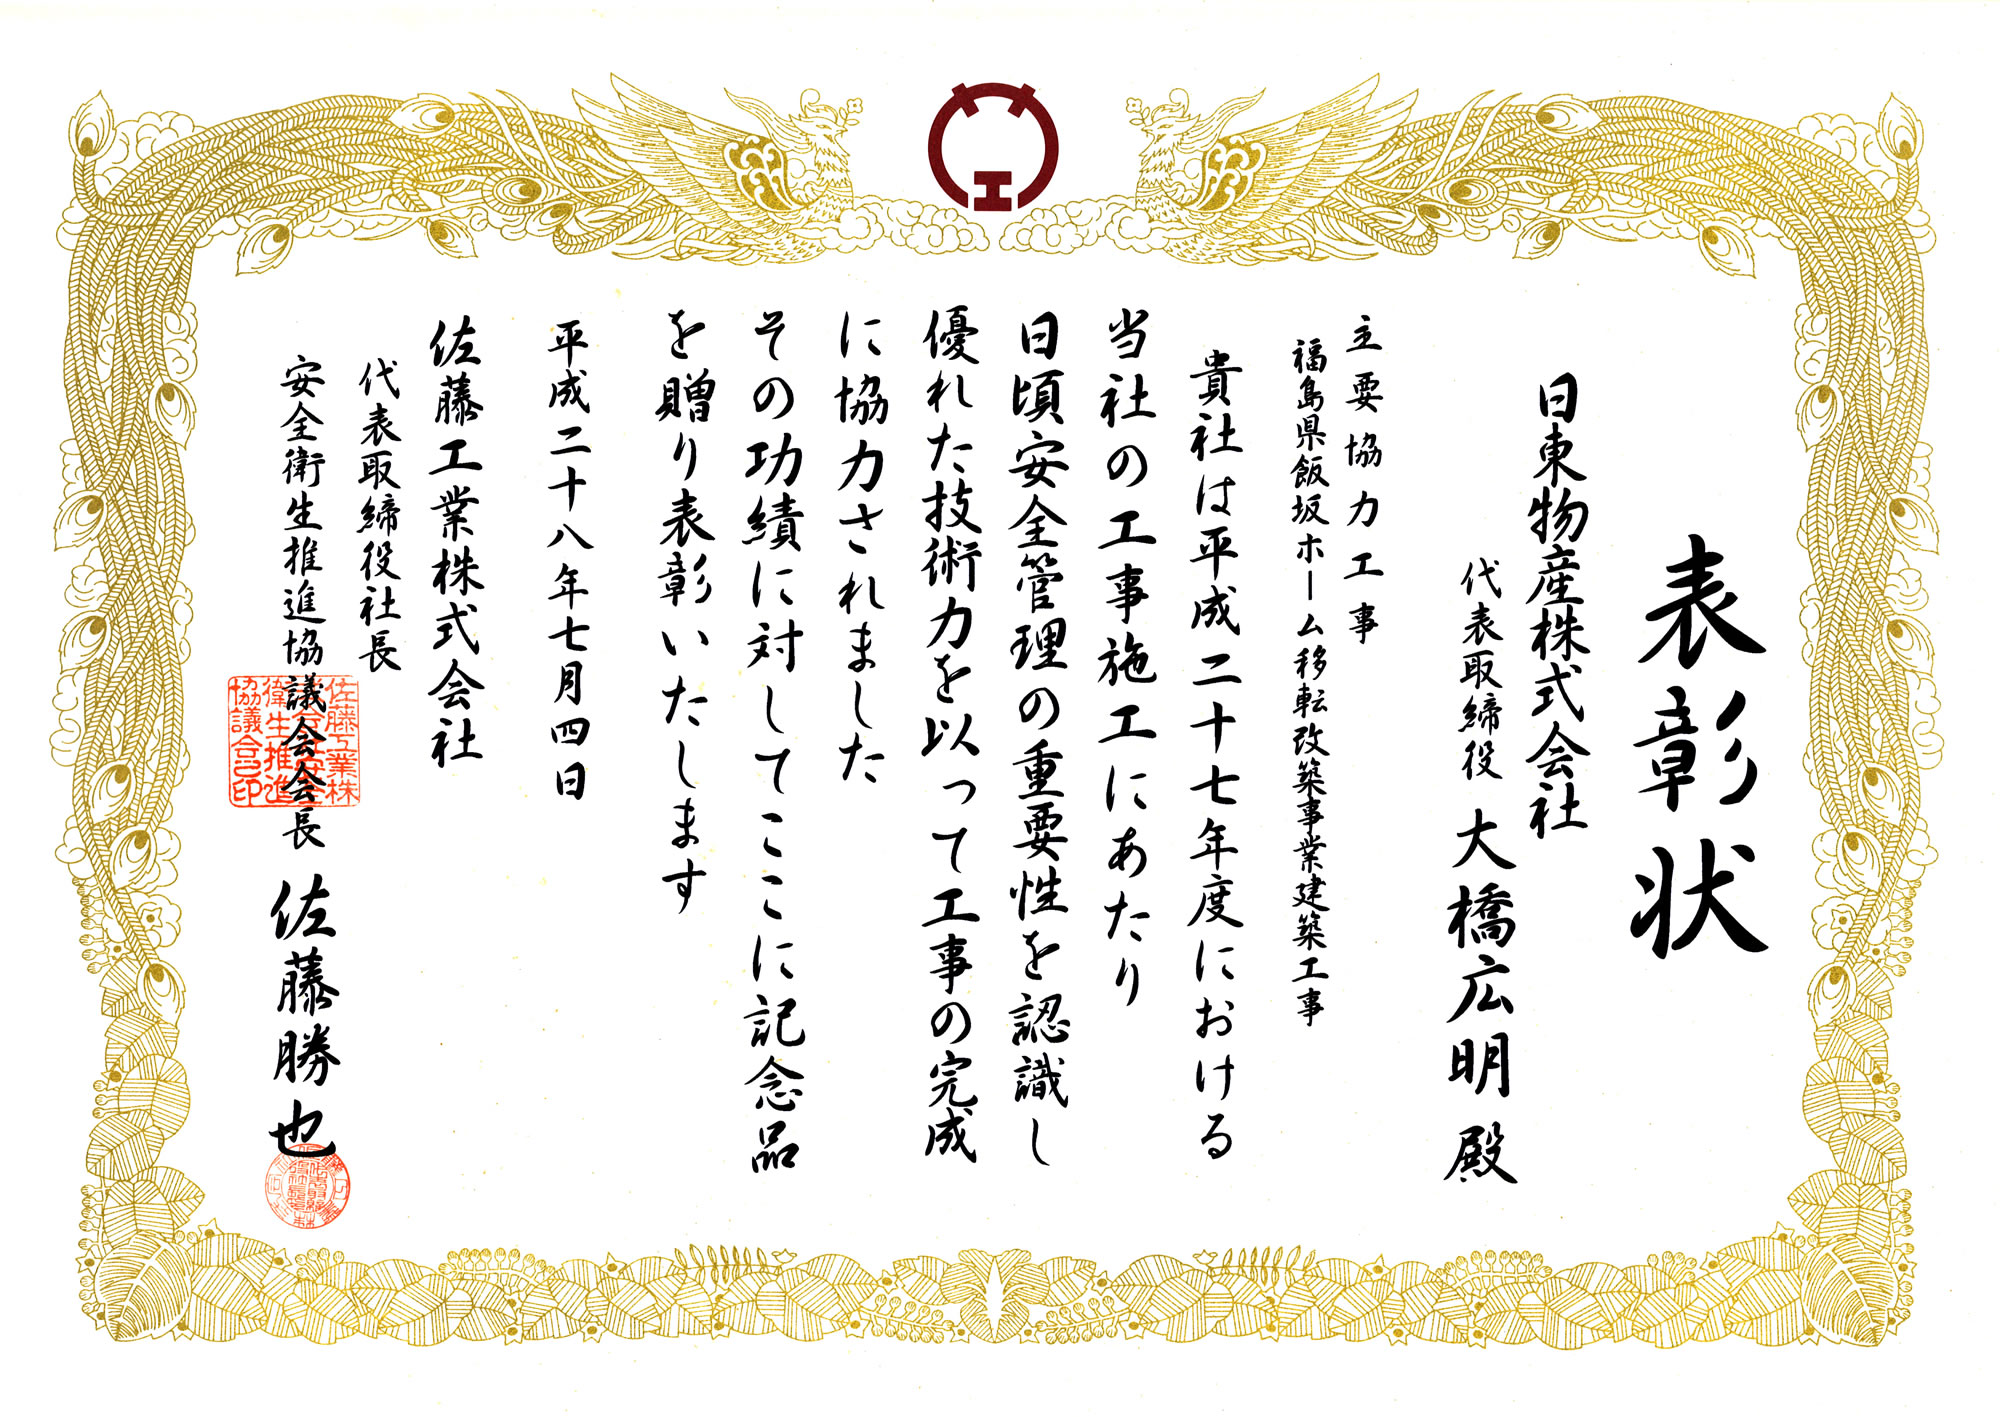 表彰状
日東物産株式会社
代表取締役 大橋広明 殿
主要協力工事
福島県飯坂ホーム移転改築事業建築工事
貴社は平成二十七年度における
当社の工事施工にあたり
日頃安全管理の重要性を認識し
優れた技術力を以って工事の完成
に協力されました
その功績に対してここに記念品
を贈り表彰いたします
平成二十八年七月四日
佐藤工業株式会社
代表取締役社長
安全衛生推進協議会会長 佐藤勝也
佐藤工業株
衛生推進
協議会印
工